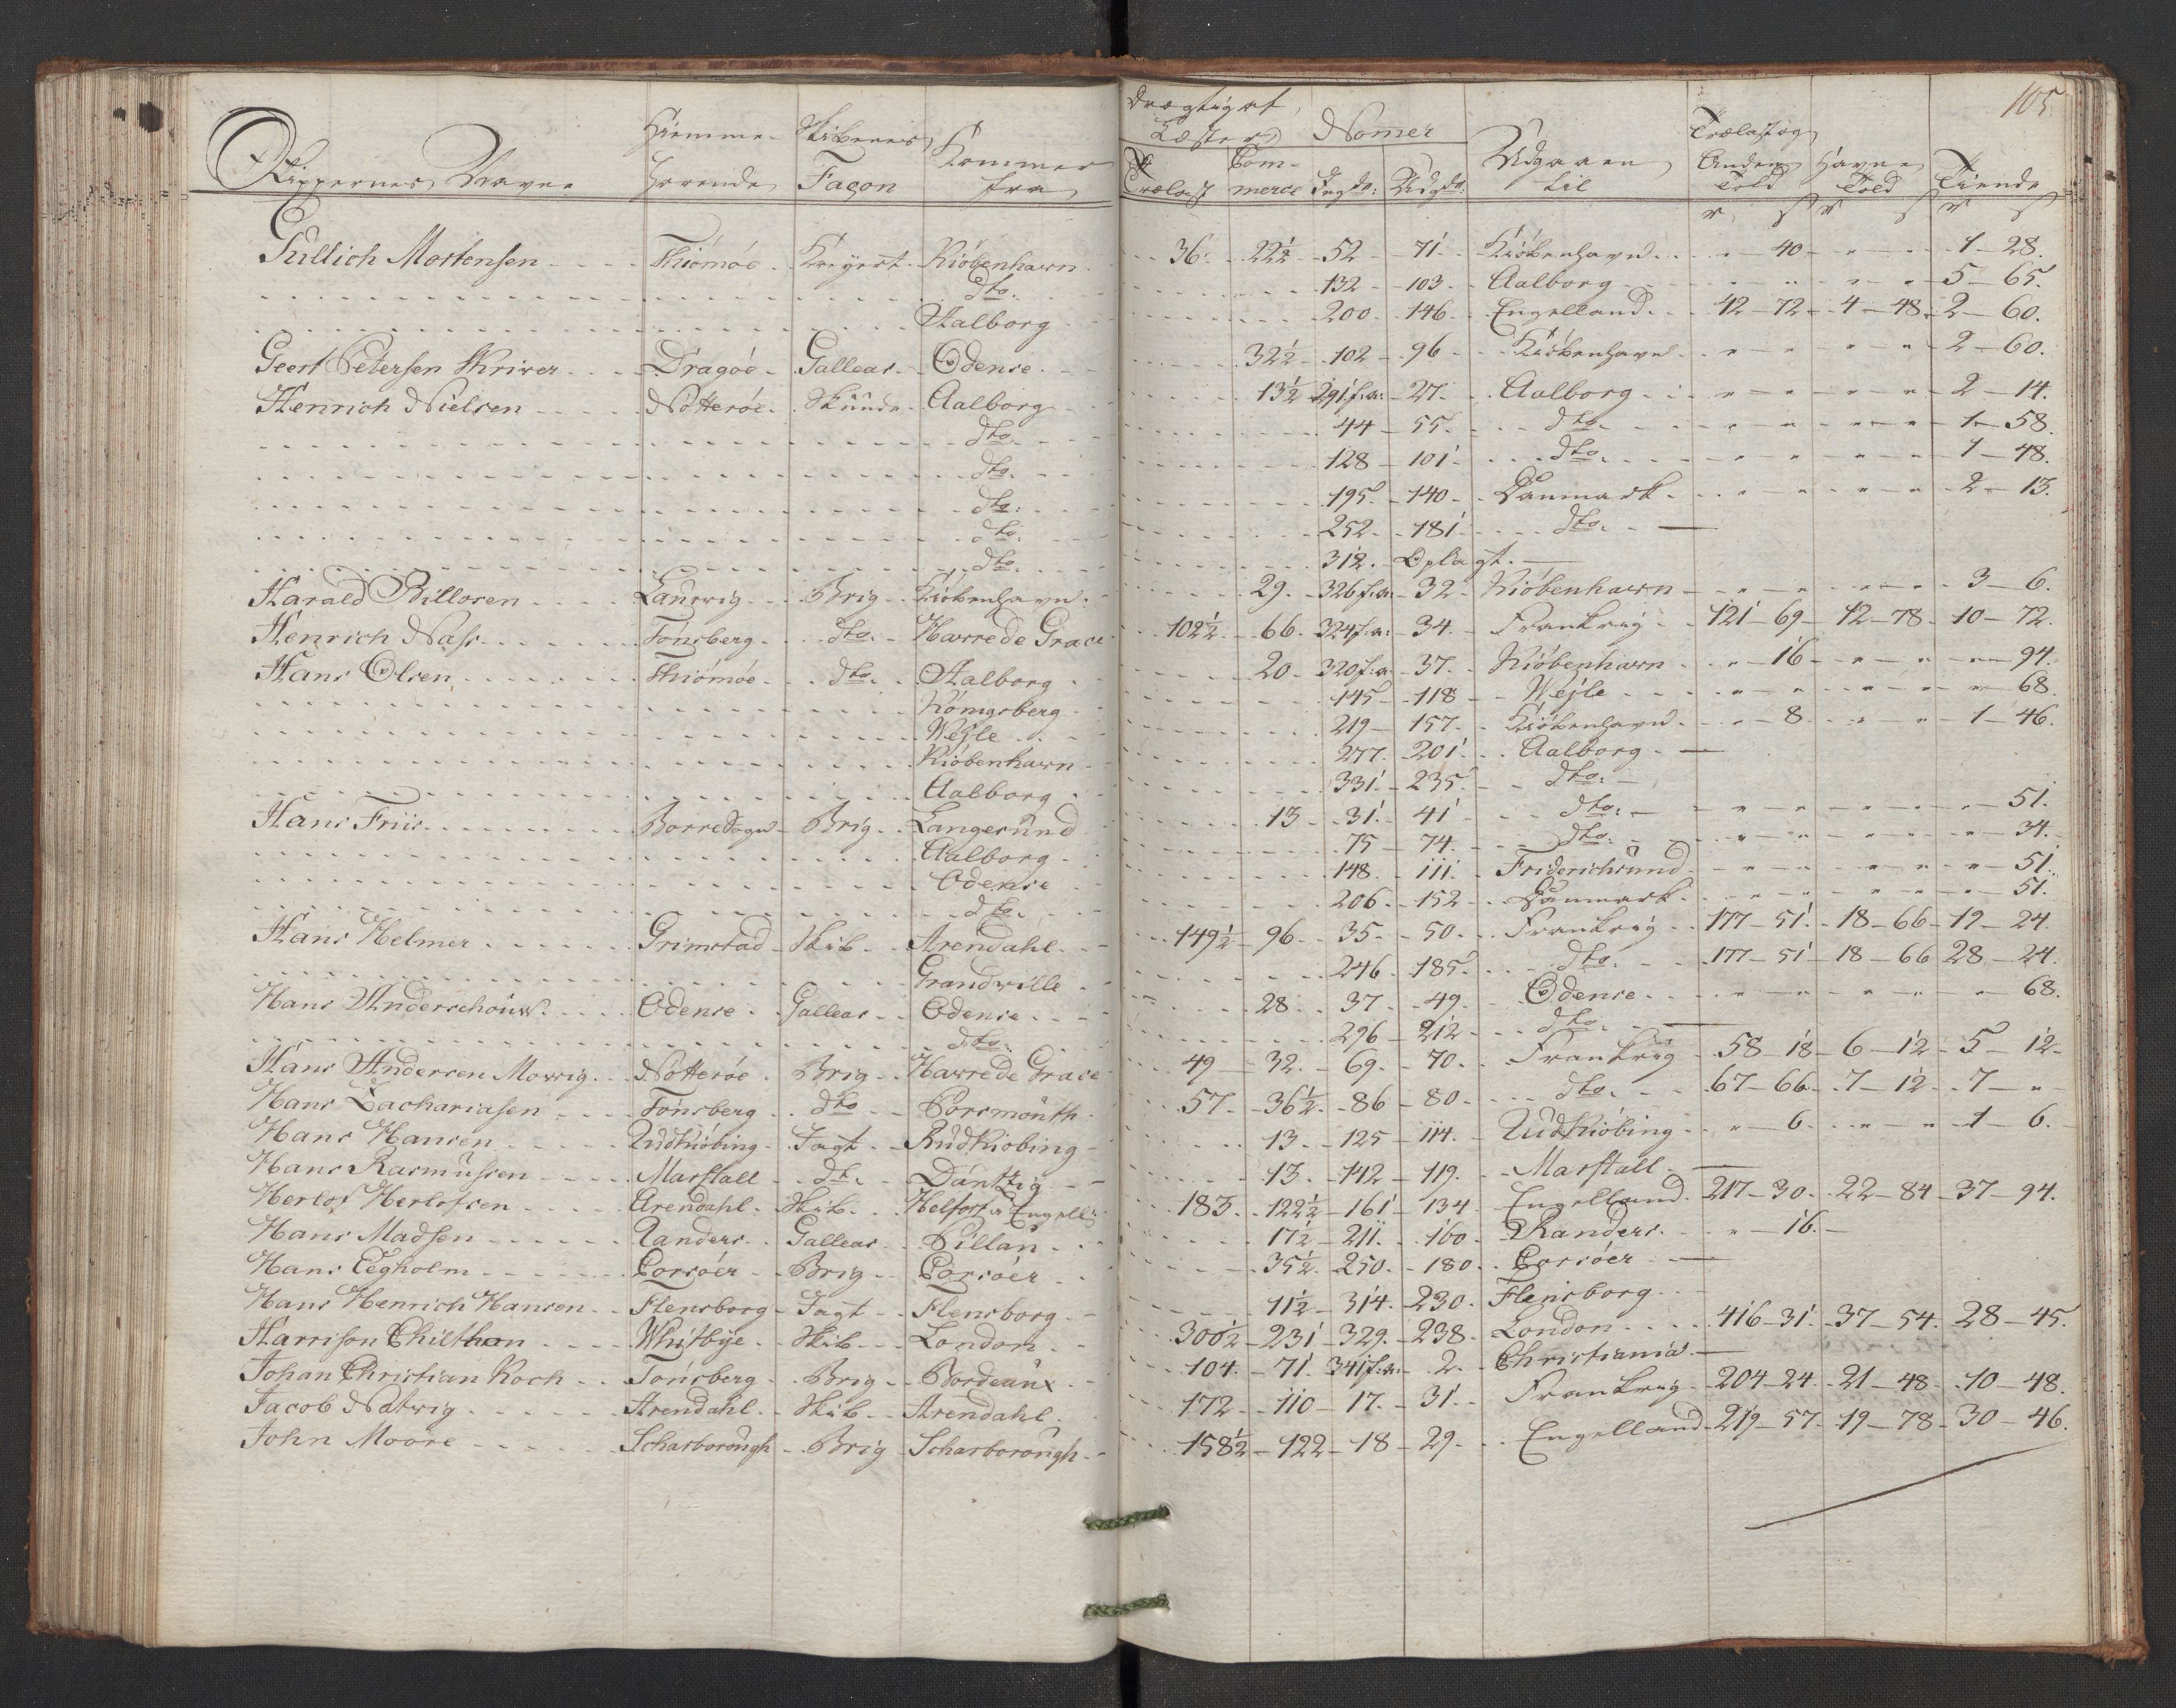 105
Skippernes Navne Hiemme- Hørende Skibenes Façon Kommer fra Drægtighed Læster Trælast Com- merce Nomer Ing.do: Udg.do: Udgaaen til Trælast og Anden Told Havne Told Tiende
r s r s r s
Gullich Mortensen Thiömöe Kreyert Kiöbenhavn 36 22½ 52 71 Kiöbenhavn " 40 " " 1 28
dto. 132 103 Aalborg " " " " 5 65
Aalborg 200 146 Engelland 42 72 4 48 2 60
Geert Petersen Skriver Dragöe Galleas Odense 32½ 102 96 Kiöbenhavn " " " " 2 60
Henrich Nielsen Nötteröe Skünde Aalborg 13½ 291 f.a: 27 Aalborg " " " " 2 14
dto. 44 55 dto. " " " " 1 58
dto. 128 101 dto. " " " " 1 48
dto: 195 140 Danmark " " " " 2 13
dto: 252 181 dto. —
dto: 312 Oplagt —
Harald Billosen Laurvig Brig Kiöbenhavn 29 326 f.a: 32 Kiöbenhavn " " " " 3 6
Henrich Nass Tonsberg dto. Havre de Grace 102½ 66 324 f.a: 34 Frankrig 121 69 12 78 10 72
Hans Olsen Thiömöe dto. Aalborg 20 320 f.a: 37 Kiöbenhavn " 16 " " " 94
Königsberg 145 118 Wejle " " " " " 68
Wejle 219 157 Kiöbenhavn " 8 " " 1 46
Kiöbenhavn 277 201 Aalborg —
Aalborg 331 235 dto: —
Hans Friis Borre Sogn Brig Langesund 13 31 41 dto: " " " " " 51
Aalborg 75 74 dto. " " " " " 34
Odense 148 111 Friderichsund " " " " " 51
dto. 206 152 Danmark " " " " " 51
Hans Helmer Grimstad Skib Arendahl 149½ 96 35 50 Frankrig 177 51 18 66 19 24
Grandville 246 185 dto. 177 51 18 66 28 24
Hans Anderschouw Odense Galleas Odense 28 37 49 Odense " " " " " 68
dto. 296 212 dto. —
Hans Andersen Mowig Nötteröe Brig Havre de Grace 49 32 69 70 Frankrig 58 18 6 12 5 12
Hans Zachariasen Tonsberg dto Porsmouth 57 36½ 86 80 dto. 67 66 7 12 7 "
Hans Hansen Rudkiöbing Jagt Rudkiöbing 13 125 114 Rudkiöbing " 6 " " 1 6
Hans Rasmussen Marstall dt. Dantzig 13 142 119 Marstall —
Herlof Herlofsen Arendahl Skib Helfort i Engell: 183 122½ 161 134 Engelland 217 30 22 84 37 94
Hans Madsen Randers Galleas Pillan 17½ 211 160 Randers " 16 —
Hans Eegholm Corsöer Brig Corsöer 35½ 250 180 Corsöer —
Hans Henrich Hansen Flensborg Jagt Flensborg 11½ 314 230 Flensborg
Harrison Chilthon Whitbye Skib London 300½ 231 329 238 London 416 31 37 54 28 45
Johan Christian Koch Tonsberg Brig Bordeaux 104 71 341 f.a: 2 Christiania —
Jacob Natvig Arendahl Skib Arendahl 172 110 17 31 Frankrig 204 24 21 48 10 48
John Moore Scharborough Brig Scharborough 158½ 122 18 29 Engelland 219 57 19 78 30 46